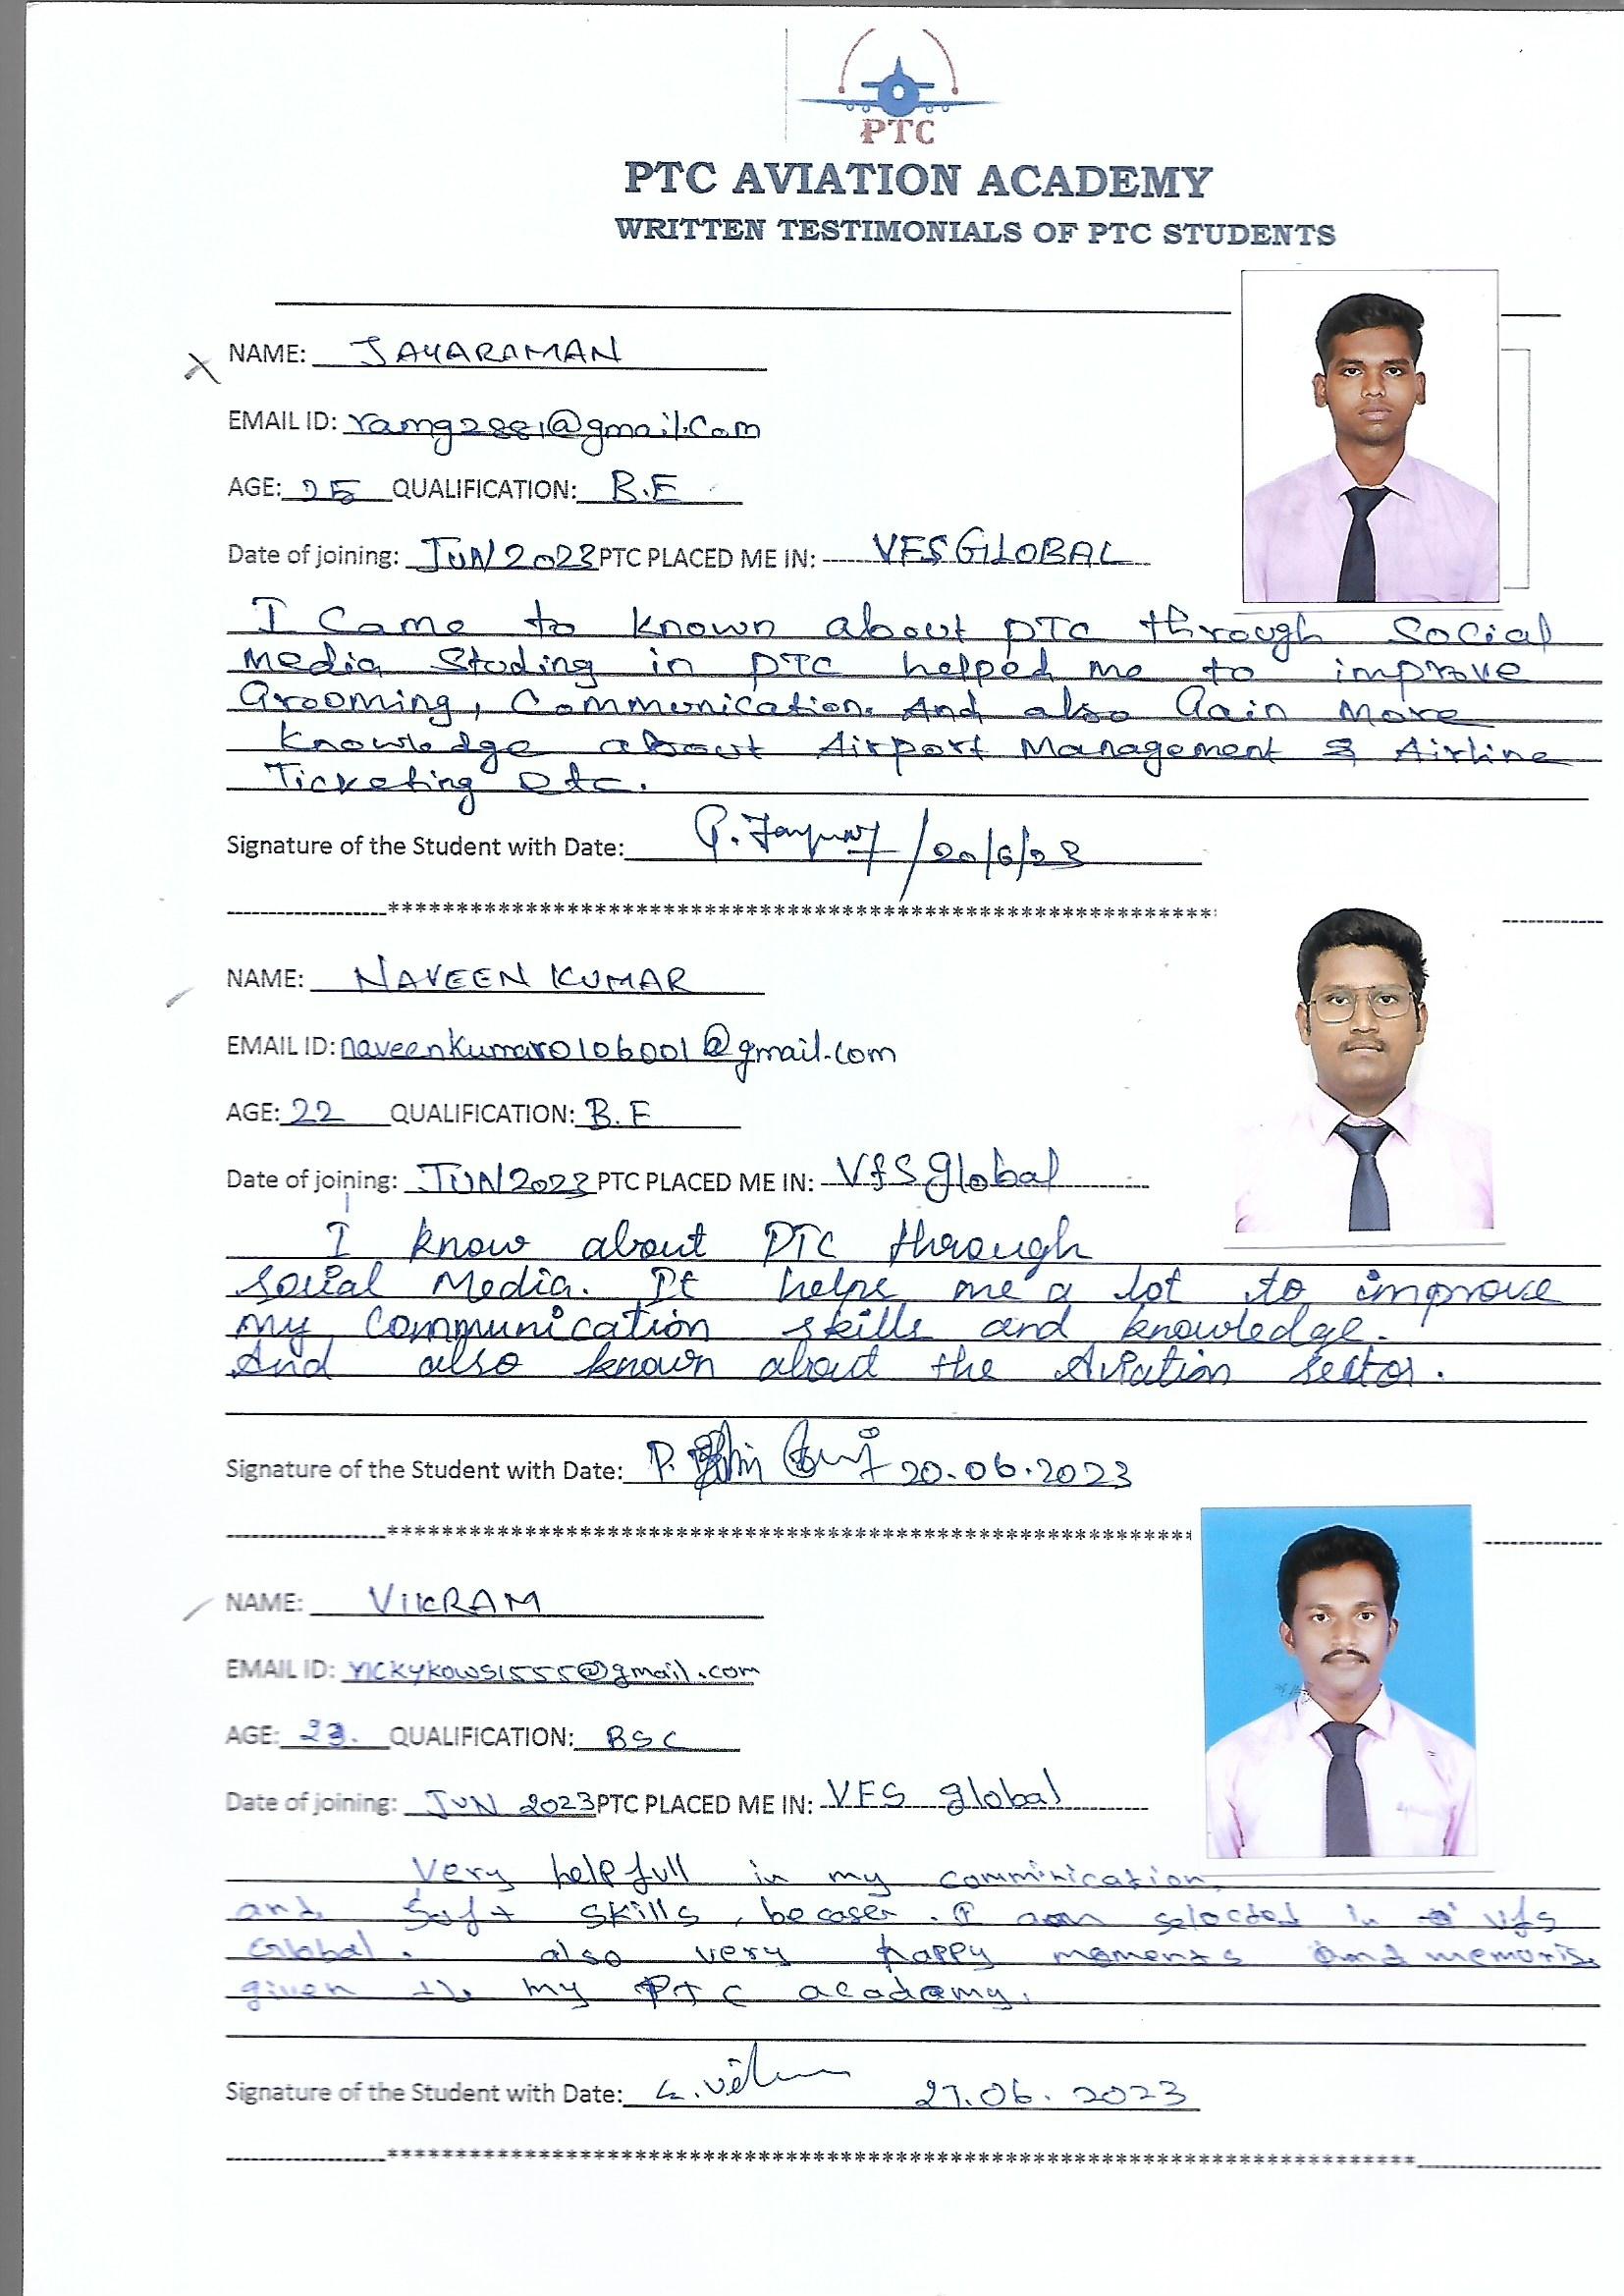 PTC
PTC AVIATION ACADEMY
WRITTEN TESTIMONIALS OF PTC STUDENTS
NAME: JAYARAMAN
EMAIL ID: ramg2881@gmail.Com
AGE: 25 QUALIFICATION: B.E
Date of joining: JUN 2023 PTC PLACED ME IN: VFS GLOBAL
I Came to known about PTC through Social
Media Studing in PTC helped me to improve
Grooming, Communication. And also Gain More
Knowledge about Airport Management & Airline
Ticketing etc.
Signature of the Student with Date: /20/6/23
************************************************************
NAME: NAVEEN KUMAR
EMAIL ID: naveenkumar0106001@gmail.com
AGE: 22 QUALIFICATION: B.E
Date of joining: JUN 2023 PTC PLACED ME IN: VfS global
I know about PTC through
social Media. It helps me a lot to improve
my communication skills and knowledge.
And also known about the Aviation sector.
Signature of the Student with Date: P. 20.06.2023
************************************************************
NAME: VIKRAM
EMAIL ID: vickykows1555@gmail.com
AGE: 23. QUALIFICATION: BSC
Date of joining: JUN 2023 PTC PLACED ME IN: VFS global
Very helpfull in my comminication,
and Soft skills, becaser. I am selected in vfs
Global. also very happy moments and memoris
given my PTC academy.
Signature of the Student with Date: 27.06.2023
************************************************************